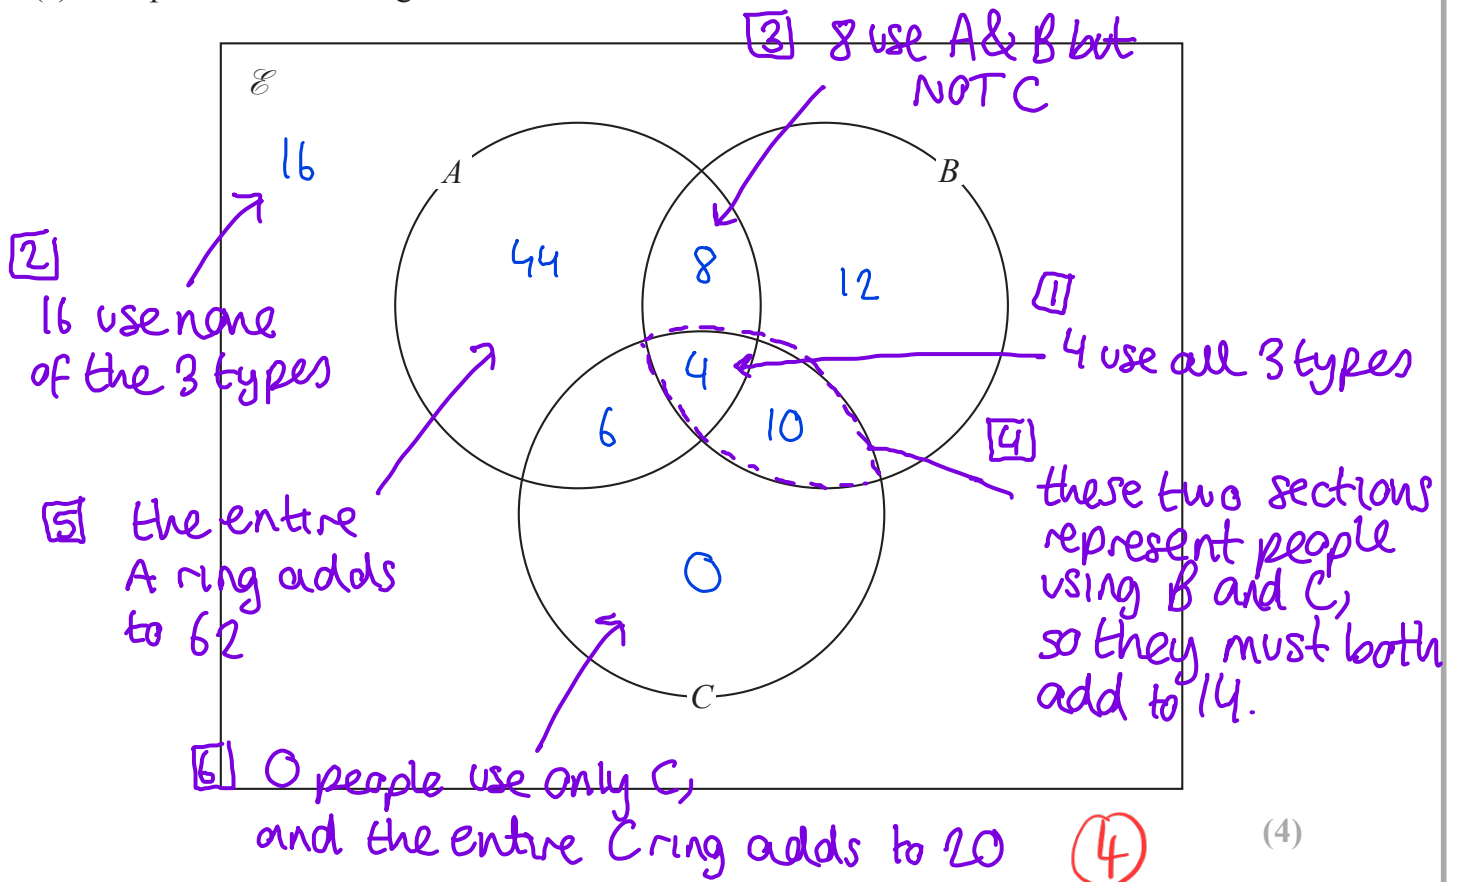 3 8 use A & B but
NOT C
ℰ
16
A
B
2
16 use none
of the 3 types
44
8
12
1
4 use all 3 types
4
6
10
4
these two sections
represent people
using B and C,
so they must both
add to 14.
5 the entire
A ring adds
to 62
0
C
6 0 people use only C,
and the entire C ring adds to 20
4
(4)